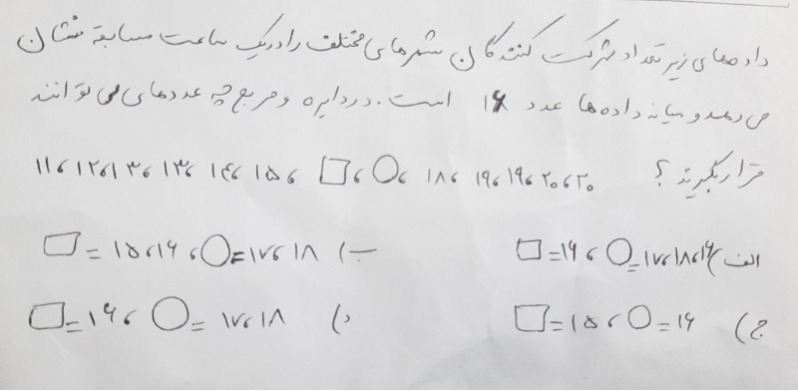 داده‌های زیر تعداد شرکت کنندگان شهرهای مختلف را در یک ساعت مسابقه نشان
می‌دهد و میانه داده‌ها عدد ۱۶ است. در دایره و مربع چه عددهای می‌توانند
قرار بگیرند؟ ۱۱، ۱۲، ۱۳، ۱۳، ۱۴، ۱۵، □، ○، ۱۸، ۱۹، ۱۹، ۲۰، ۲۰
الف) □=۱۶ ، ○=۱۷،۱۸،۱۶ ب) □=۱۵،۱۶ ، ○=۱۷،۱۸
ج) □=۱۵ ، ○=۱۶ د) □=۱۶ ، ○=۱۷،۱۸